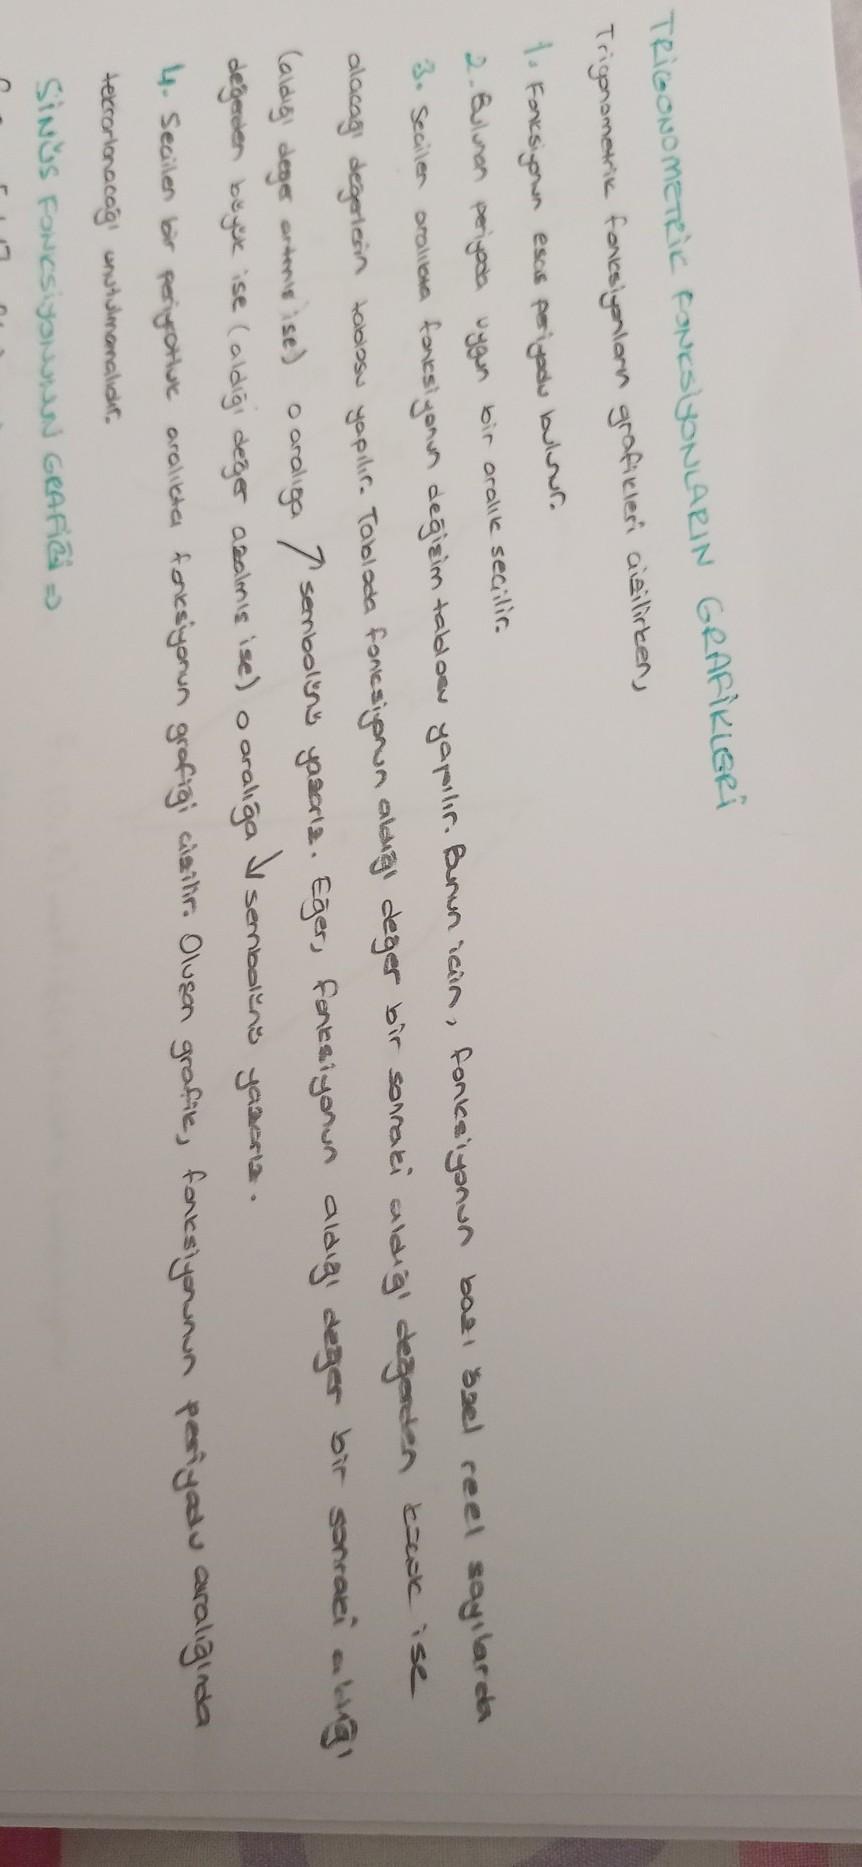 TRİGONOMETRİK FONKSİYONLARIN GRAFİKLERİ
Trigonometrik fonksiyonların grafikleri çizilirken,
1. Fonksiyonun esas periyodu bulunur.
2. Bulunan periyoda uygun bir aralık seçilir.
3. Seçilen aralıkta fonksiyonun değişim tablosu yapılır. Bunun için, fonksiyonun bazı özel reel sayılarda
alacağı değerlerin tablosu yapılır. Tabloda fonksiyonun aldığı değer bir sonraki aldığı değerden küçük ise
(aldığı değer artmış ise) o aralığa ↗ sembolünü yazarız. Eğer, fonksiyonun aldığı değer bir sonraki aldığı
değerden büyük ise (aldığı değer azalmış ise) o aralığa ↘ sembolünü yazarız.
4. Seçilen bir periyotluk aralıkta fonksiyonun grafiği çizilir. Oluşan grafik, fonksiyonunun periyodu aralığında
tekrarlanacağı unutulmamalıdır.
SİNÜS FONKSİYONUNUN GRAFİĞİ ⇒